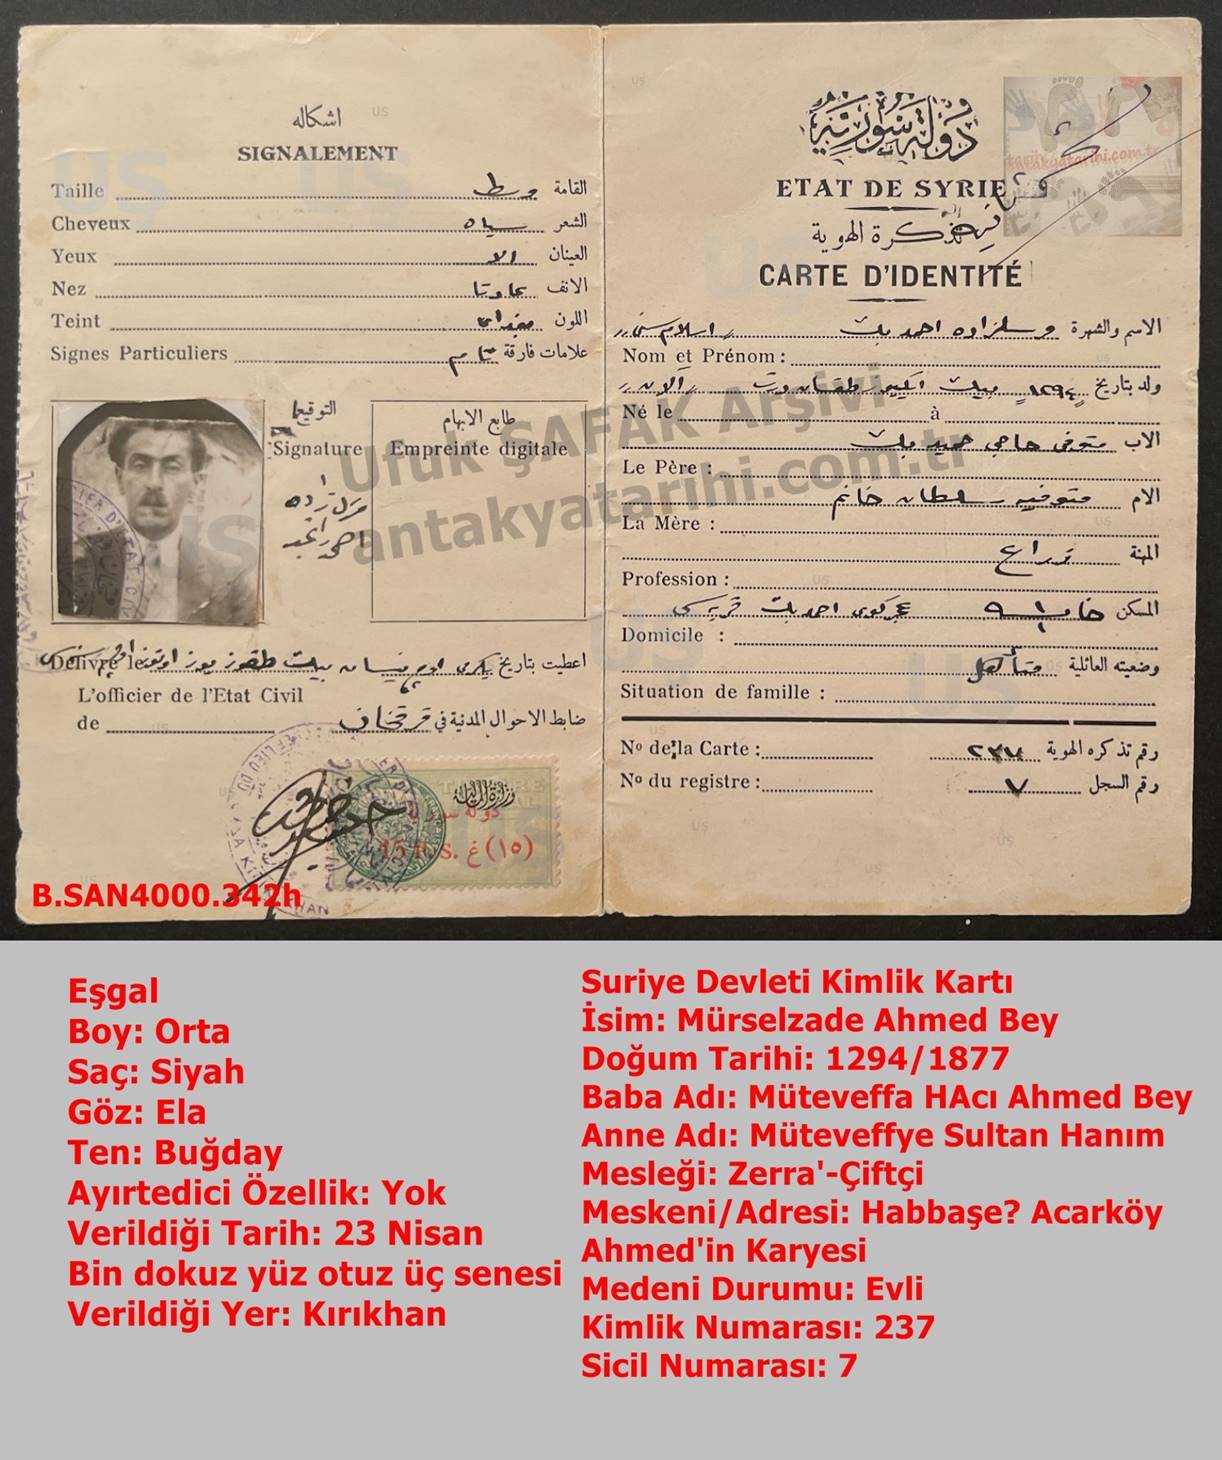 اشكاله
SIGNALEMENT
Taille وسط القامة
Cheveux سياه الشعر
Yeux الا العينان
Nez عادتا الانف
Teint بغداى اللون
Signes Particuliers تام علامات فارقة
التوقيع
Signature
مرسل زاده
احمد
طابع الابهام
Empreinte digitale
Délivré le يكرمى اوچ نيسان بيك طقوز يوز اوتوز اعطيت بتاريخ
L'officier de l'Etat Civil
de قرقخان ضابط الاحوال المدنية في
وزارة المالية
دولة سورية
15 P.S. (١٥) غ
B.SAN4000.342h
دولة سورية
ETAT DE SYRIE
تذكرة الهوية
CARTE D'IDENTITÉ
الاسم والشهرة مرسلزاده احمد بك اسلام سنى
Nom et Prénom :
ولد بتاريخ ١٢٩٤ بيك ايكيوز طقسان درت
Né le à
الاب متوفى حاجى حميد بك
Le Père :
الام متوفيه سلطان خانم
La Mère :
المهنة زراع
Profession :
المسكن احمد بك قريه سى
Domicile :
وضعيته العائلية متأهل
Situation de famille :
Nº de la Carte : ٢٣٧ رقم تذكره الهوية
Nº du registre : ٧ رقم السجل
Ufuk ŞAFAK Arşivi
antakyatarihi.com.tr
Eşgal
Boy: Orta
Saç: Siyah
Göz: Ela
Ten: Buğday
Ayırtedici Özellik: Yok
Verildiği Tarih: 23 Nisan
Bin dokuz yüz otuz üç senesi
Verildiği Yer: Kırıkhan
Suriye Devleti Kimlik Kartı
İsim: Mürselzade Ahmed Bey
Doğum Tarihi: 1294/1877
Baba Adı: Müteveffa HAcı Ahmed Bey
Anne Adı: Müteveffye Sultan Hanım
Mesleği: Zerra'-Çiftçi
Meskeni/Adresi: Habbaşe? Acarköy
Ahmed'in Karyesi
Medeni Durumu: Evli
Kimlik Numarası: 237
Sicil Numarası: 7